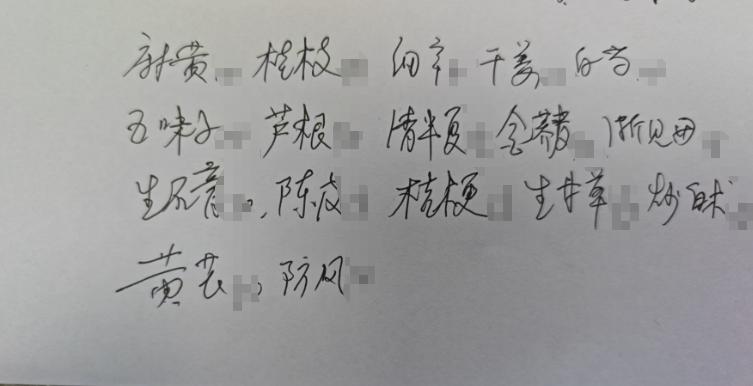 麻黄、桂枝 细辛、干姜、白芍、
五味子、芦根 清半夏、金荞麦、浙贝母、
生石膏、陈皮 桔梗、生甘草、炒白术
黄芪、防风